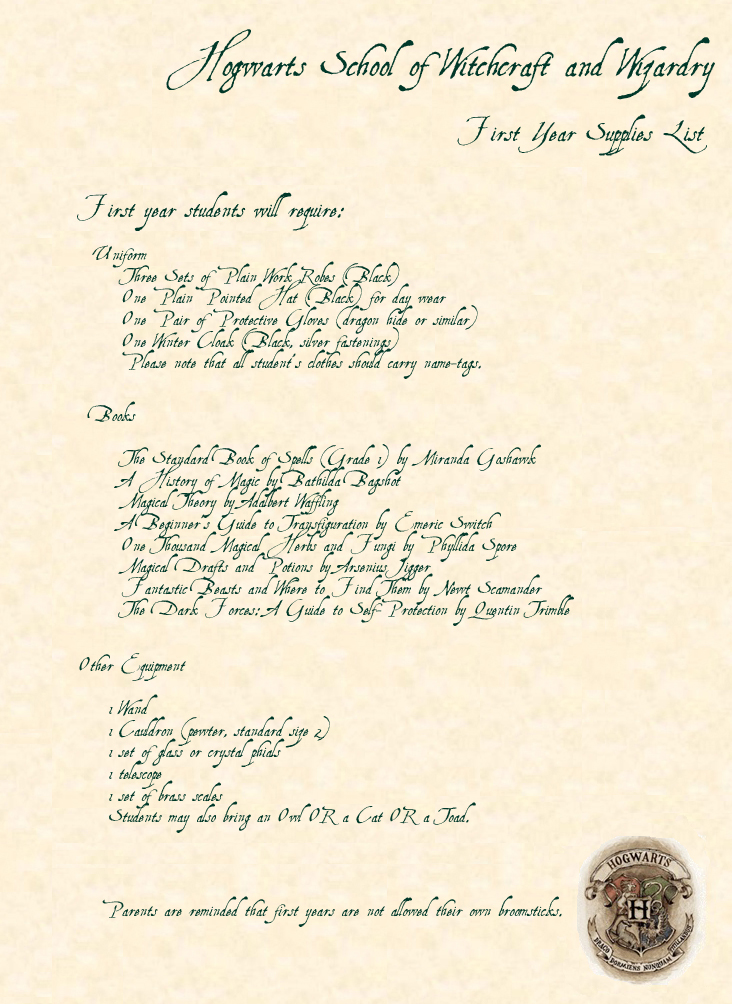 Hogwarts School of Witchcraft and Wizardry
First Year Supplies List
First year students will require:
Uniform
Three Sets of Plain Work Robes (Black)
One Plain Pointed Hat (Black) for day wear
One Pair of Protective Gloves (dragon hide or similar)
One Winter Cloak (Black, silver fastenings)
Please note that all student's clothes should carry name-tags.
Books
The Standard Book of Spells (Grade 1) by Miranda Goshawk
A History of Magic by Bathilda Bagshot
Magical Theory by Adalbert Waffling
A Beginner's Guide to Transfiguration by Emeric Switch
One Thousand Magical Herbs and Fungi by Phyllida Spore
Magical Drafts and Potions by Arsenius Jigger
Fantastic Beasts and Where to Find Them by Newt Scamander
The Dark Forces: A Guide to Self-Protection by Quentin Trimble
Other Equipment
1 Wand
1 Cauldron (pewter, standard size 2)
1 set of glass or crystal phials
1 telescope
1 set of brass scales
Students may also bring an Owl OR a Cat OR a Toad.
Parents are reminded that first years are not allowed their own broomsticks.
HOGWARTS
H
DRACO DORMIENS NUNQUAM TITILLANDUS